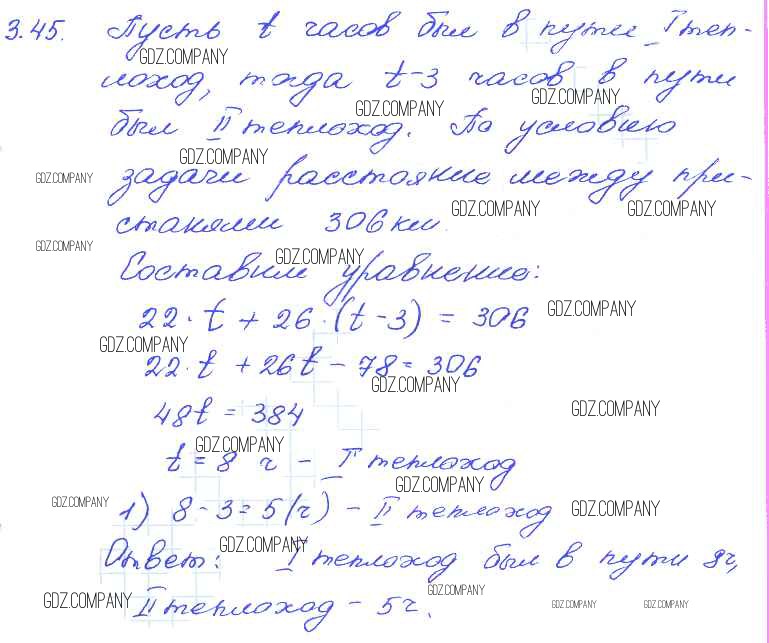 3.45. Пусть t часов был в пути I теп-
GDZ.COMPANY
лоход, тогда t-3 часов в пути
GDZ.COMPANY GDZ.COMPANY
был II теплоход. По условию
GDZ.COMPANY
GDZ.COMPANY задачи расстояние между при-
GDZ.COMPANY GDZ.COMPANY
станями 306 км.
GDZ.COMPANY GDZ.COMPANY
Составим уравнение:
22·t + 26·(t-3) = 306 GDZ.COMPANY
GDZ.COMPANY
22·t + 26t - 78 = 306
GDZ.COMPANY
48t = 384 GDZ.COMPANY
GDZ.COMPANY
t = 8 ч - I теплоход
GDZ.COMPANY
GDZ.COMPANY 1) 8-3=5(ч) - II теплоход GDZ.COMPANY
GDZ.COMPANY
Ответ: I теплоход был в пути 8ч,
GDZ.COMPANY
GDZ.COMPANY II теплоход - 5ч. GDZ.COMPANY GDZ.COMPANY